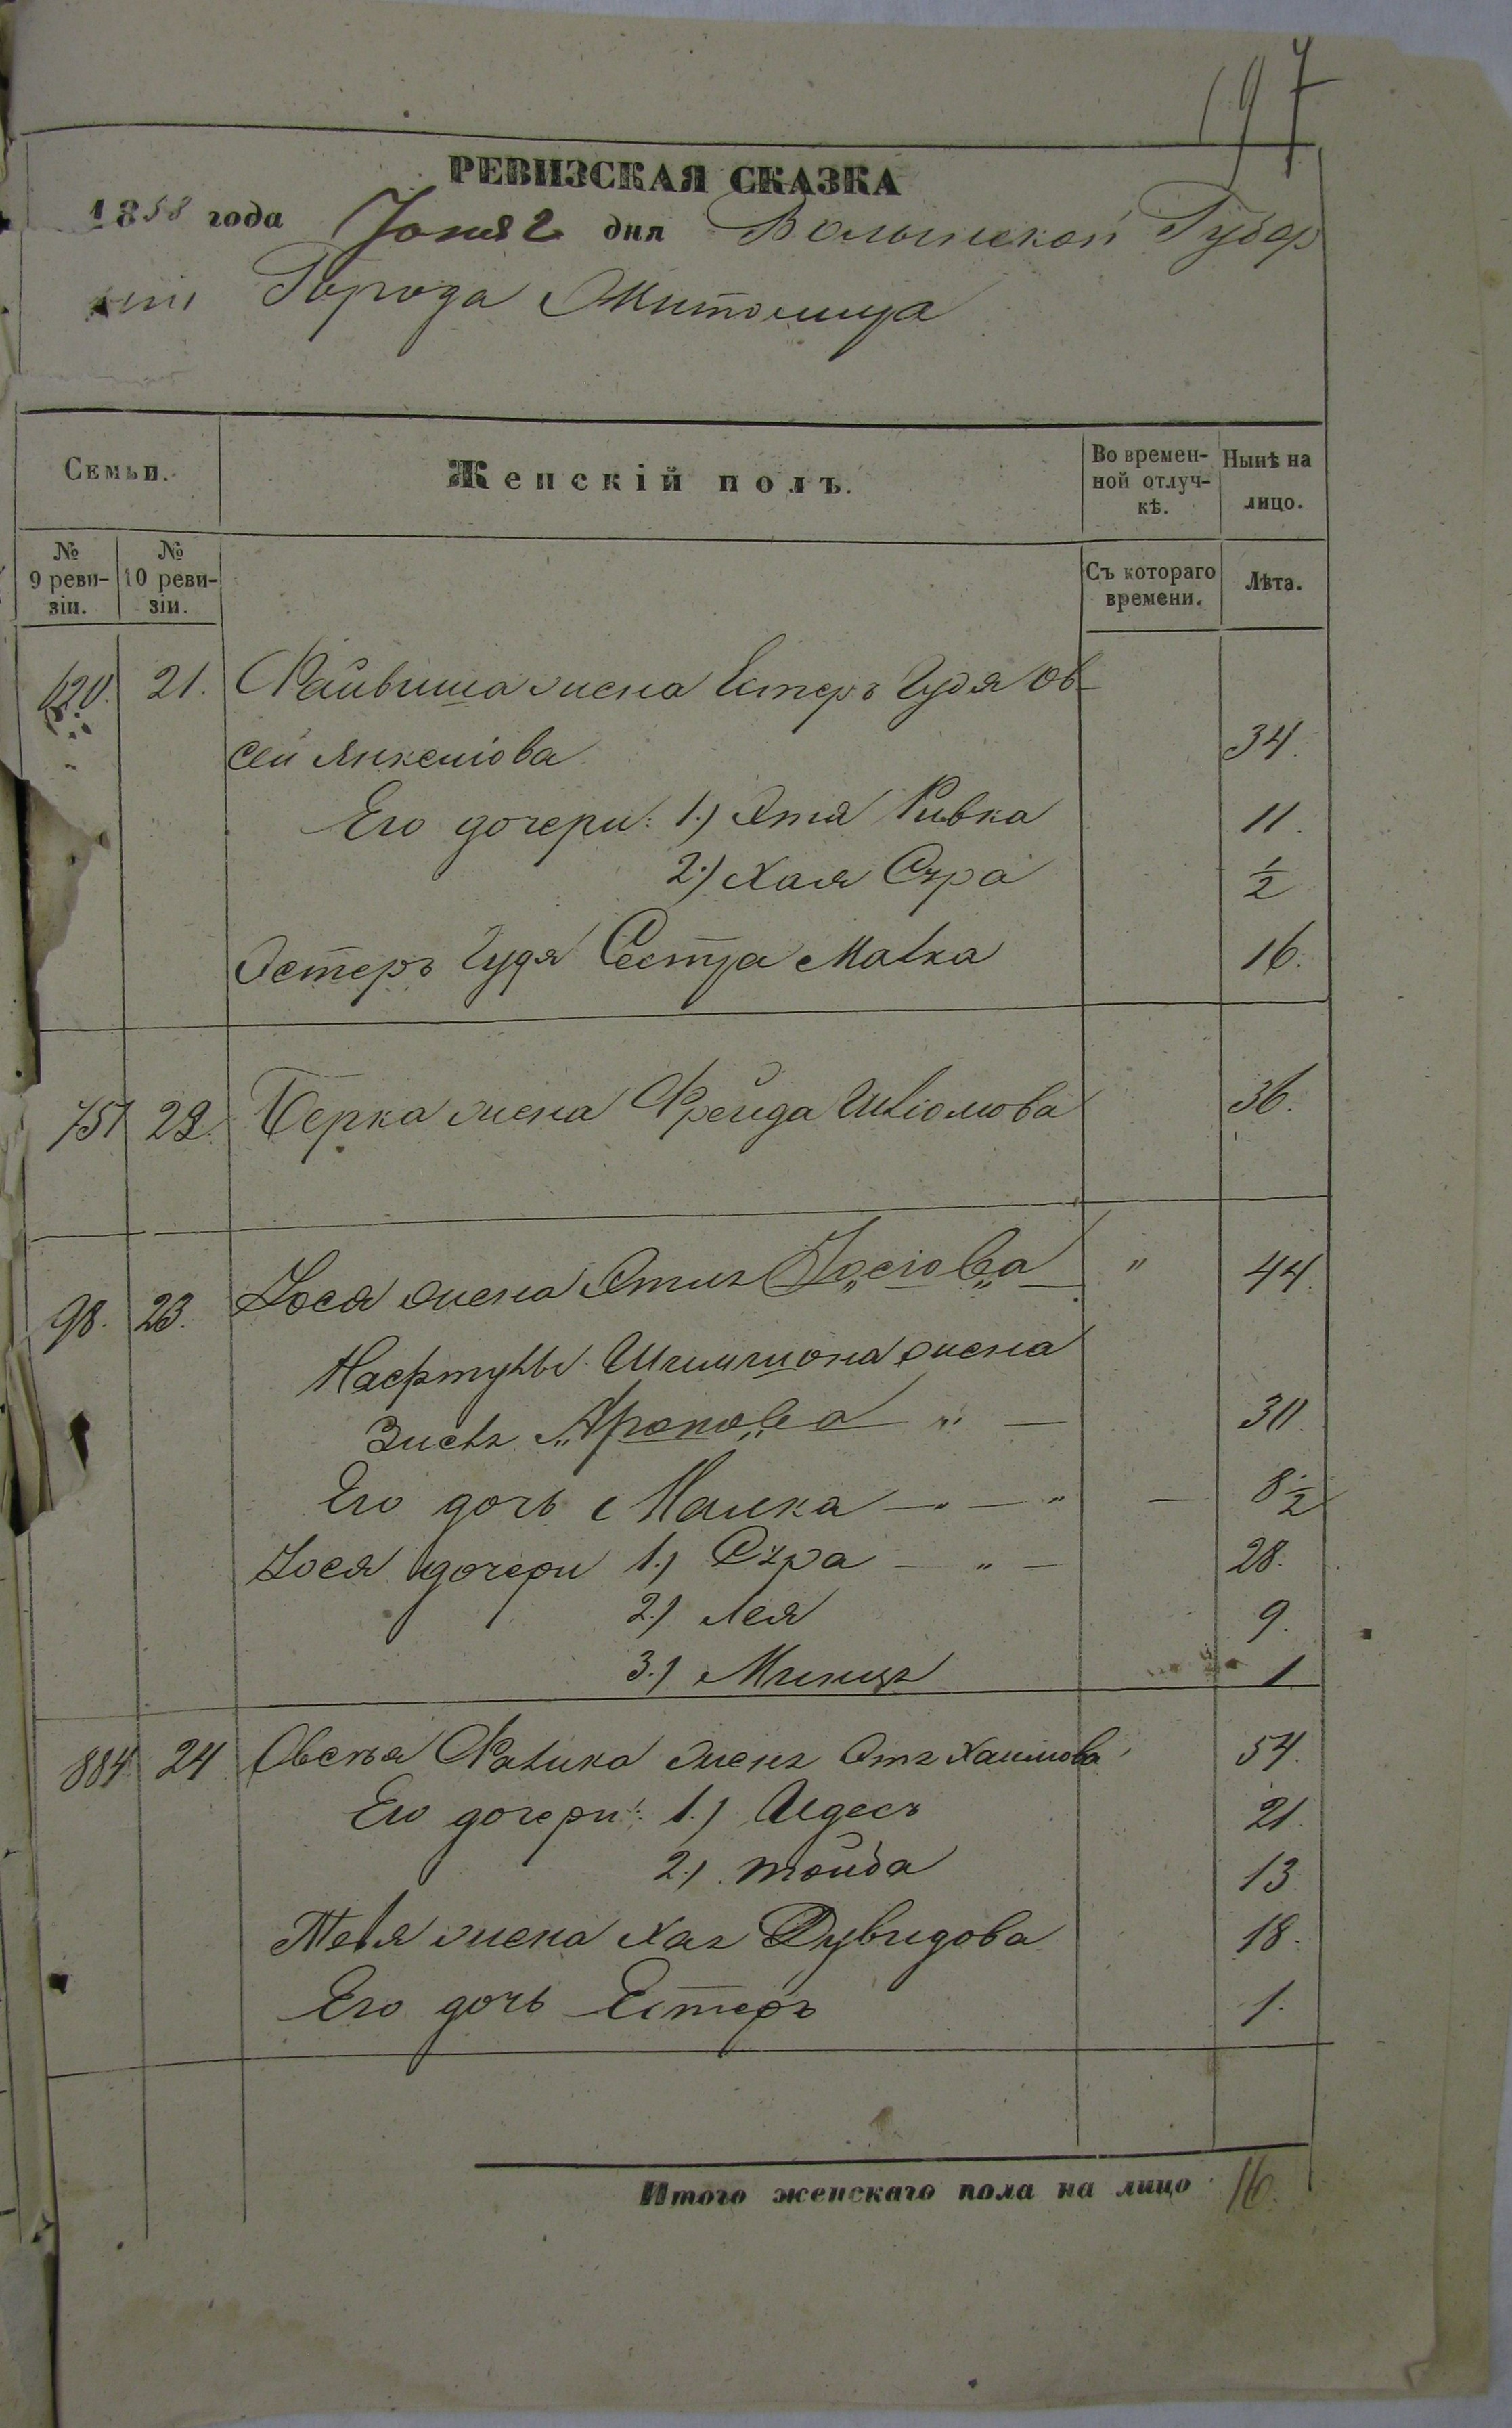 197
РЕВИЗСКАЯ СКАЗКА
1858 года Іюня 2 дня Волынской Губер
ніи Города Житомира
Семьи.
Женскій полъ.
Во времен-
ной отлуч-
кѣ.
Нынѣ на
лицо.
№
9 реви-
зіи.
№
10 реви-
зіи.
Съ котораго
времени.
Лѣта.
620. 21. Файвиша жена Естеръ Гудя Ов-
сей Янкеліова 34.
Его дочери: 1.) Этя Ривка 11.
2.) Хая Сура 1/2
Эстеръ Гудя Сестра Малка 16.
751 22. Берка жена Фрейда Шліомова 36.
98. 23. Іося жена Этля Іосіова " 44.
Нафтулы Шлимиона жена
Зисля „Аронова" " — 30.
Его дочь Малка — " — " — 8 1/2
Іося дочери 1.) Сура — " — 28.
2.) Лея 9.
3.) Минця 1
884 24 Овсея Фалика жена Этя Хаимова 54.
Его дочери: 1.) Идесъ 21.
2.) Тойба 13
жена Хая Дувидова 18.
Его дочь Естеръ 1.
Итого женскаго пола на лицо 16.